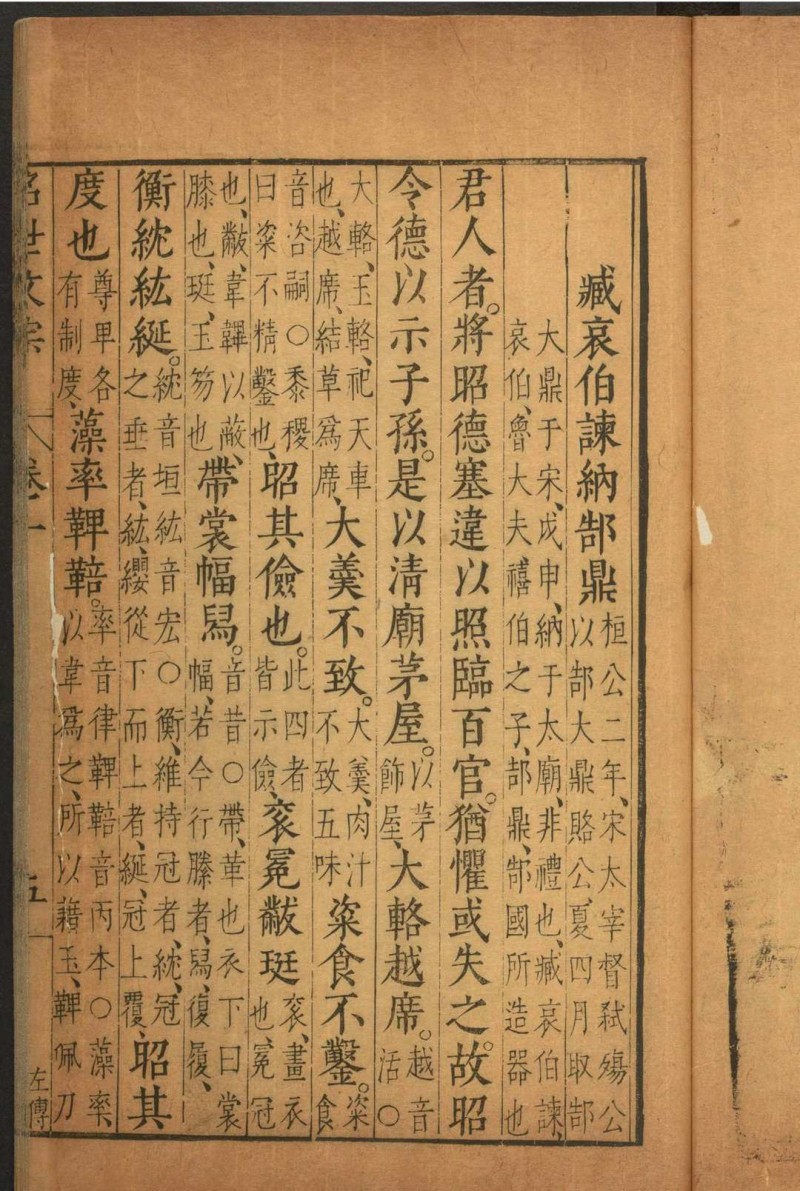 臧哀伯諫納郜鼎桓公二年、宋太宰督弑殤公以郜大鼎賂公、夏四月取郜
大鼎于宋、戊申、納于太廟、非禮也、臧哀伯諫、哀伯、魯大夫、禧伯之子、郜鼎、郜國所造器也
君人者。將昭德塞違以照臨百官。猶懼或失之。故昭
令德以示子孫。是以清廟茅屋。以茅飾屋、大輅越席。越音活○
大輅、玉輅、祀天車也、越席、結草爲席、大羹不致。大羹、肉汁不致五味粢食不鑿。粢食
音咨嗣○黍稷曰粢不精鑿也、昭其儉也。此四者皆示儉、袞冕黻珽袞、畫衣也、冕冠
也、黻、韋韠以蔽、膝也、珽、玉笏也帶裳幅舄。音昔○帶、革也衣下曰裳幅、若今行縢者、舄、復履、
衡紞紘綖。紞音垣紘音宏○衡、維持冠者、紞、冠之垂者、紘、纓從下而上者、綖、冠上覆、昭其
度也尊卑各有制度、藻率鞞鞛。率音律鞞鞛音丙本○藻率以韋爲之、所以藉玉、鞞佩刀
名世文宗 卷一 五 左傳